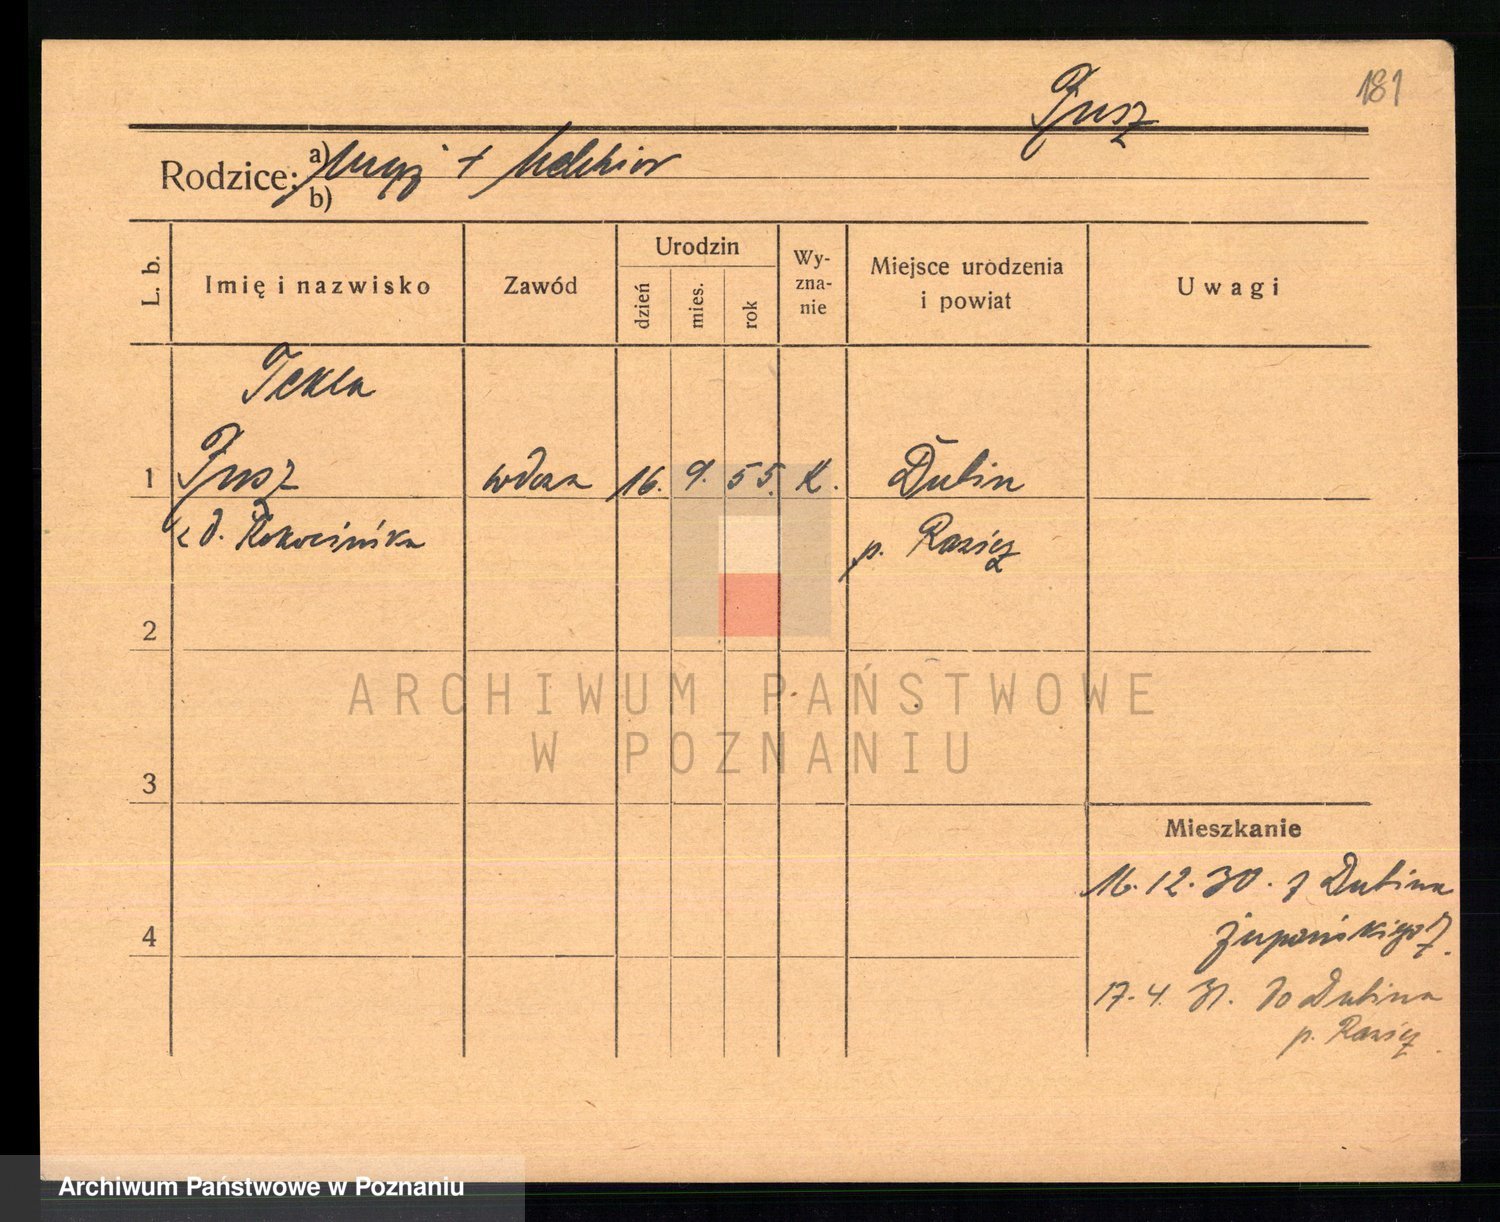 181
Jusz
Rodzice: a) + Melchior
b)
L. b.
Imię i nazwisko
Zawód
Urodzin
dzień
mies.
rok
Wy-
zna-
nie
Miejsce urodzenia
i powiat
Uwagi
Tekla
1 Jusz wdowa 16. 9. 55. K. Dubin
z d. p. Rawicz
2
3
4
ARCHIWUM PAŃSTWOWE
W POZNANIU
Mieszkanie
16.12.30. z Dubina
17.4.31. do Dubina
p. Rawicz
Archiwum Państwowe w Poznaniu